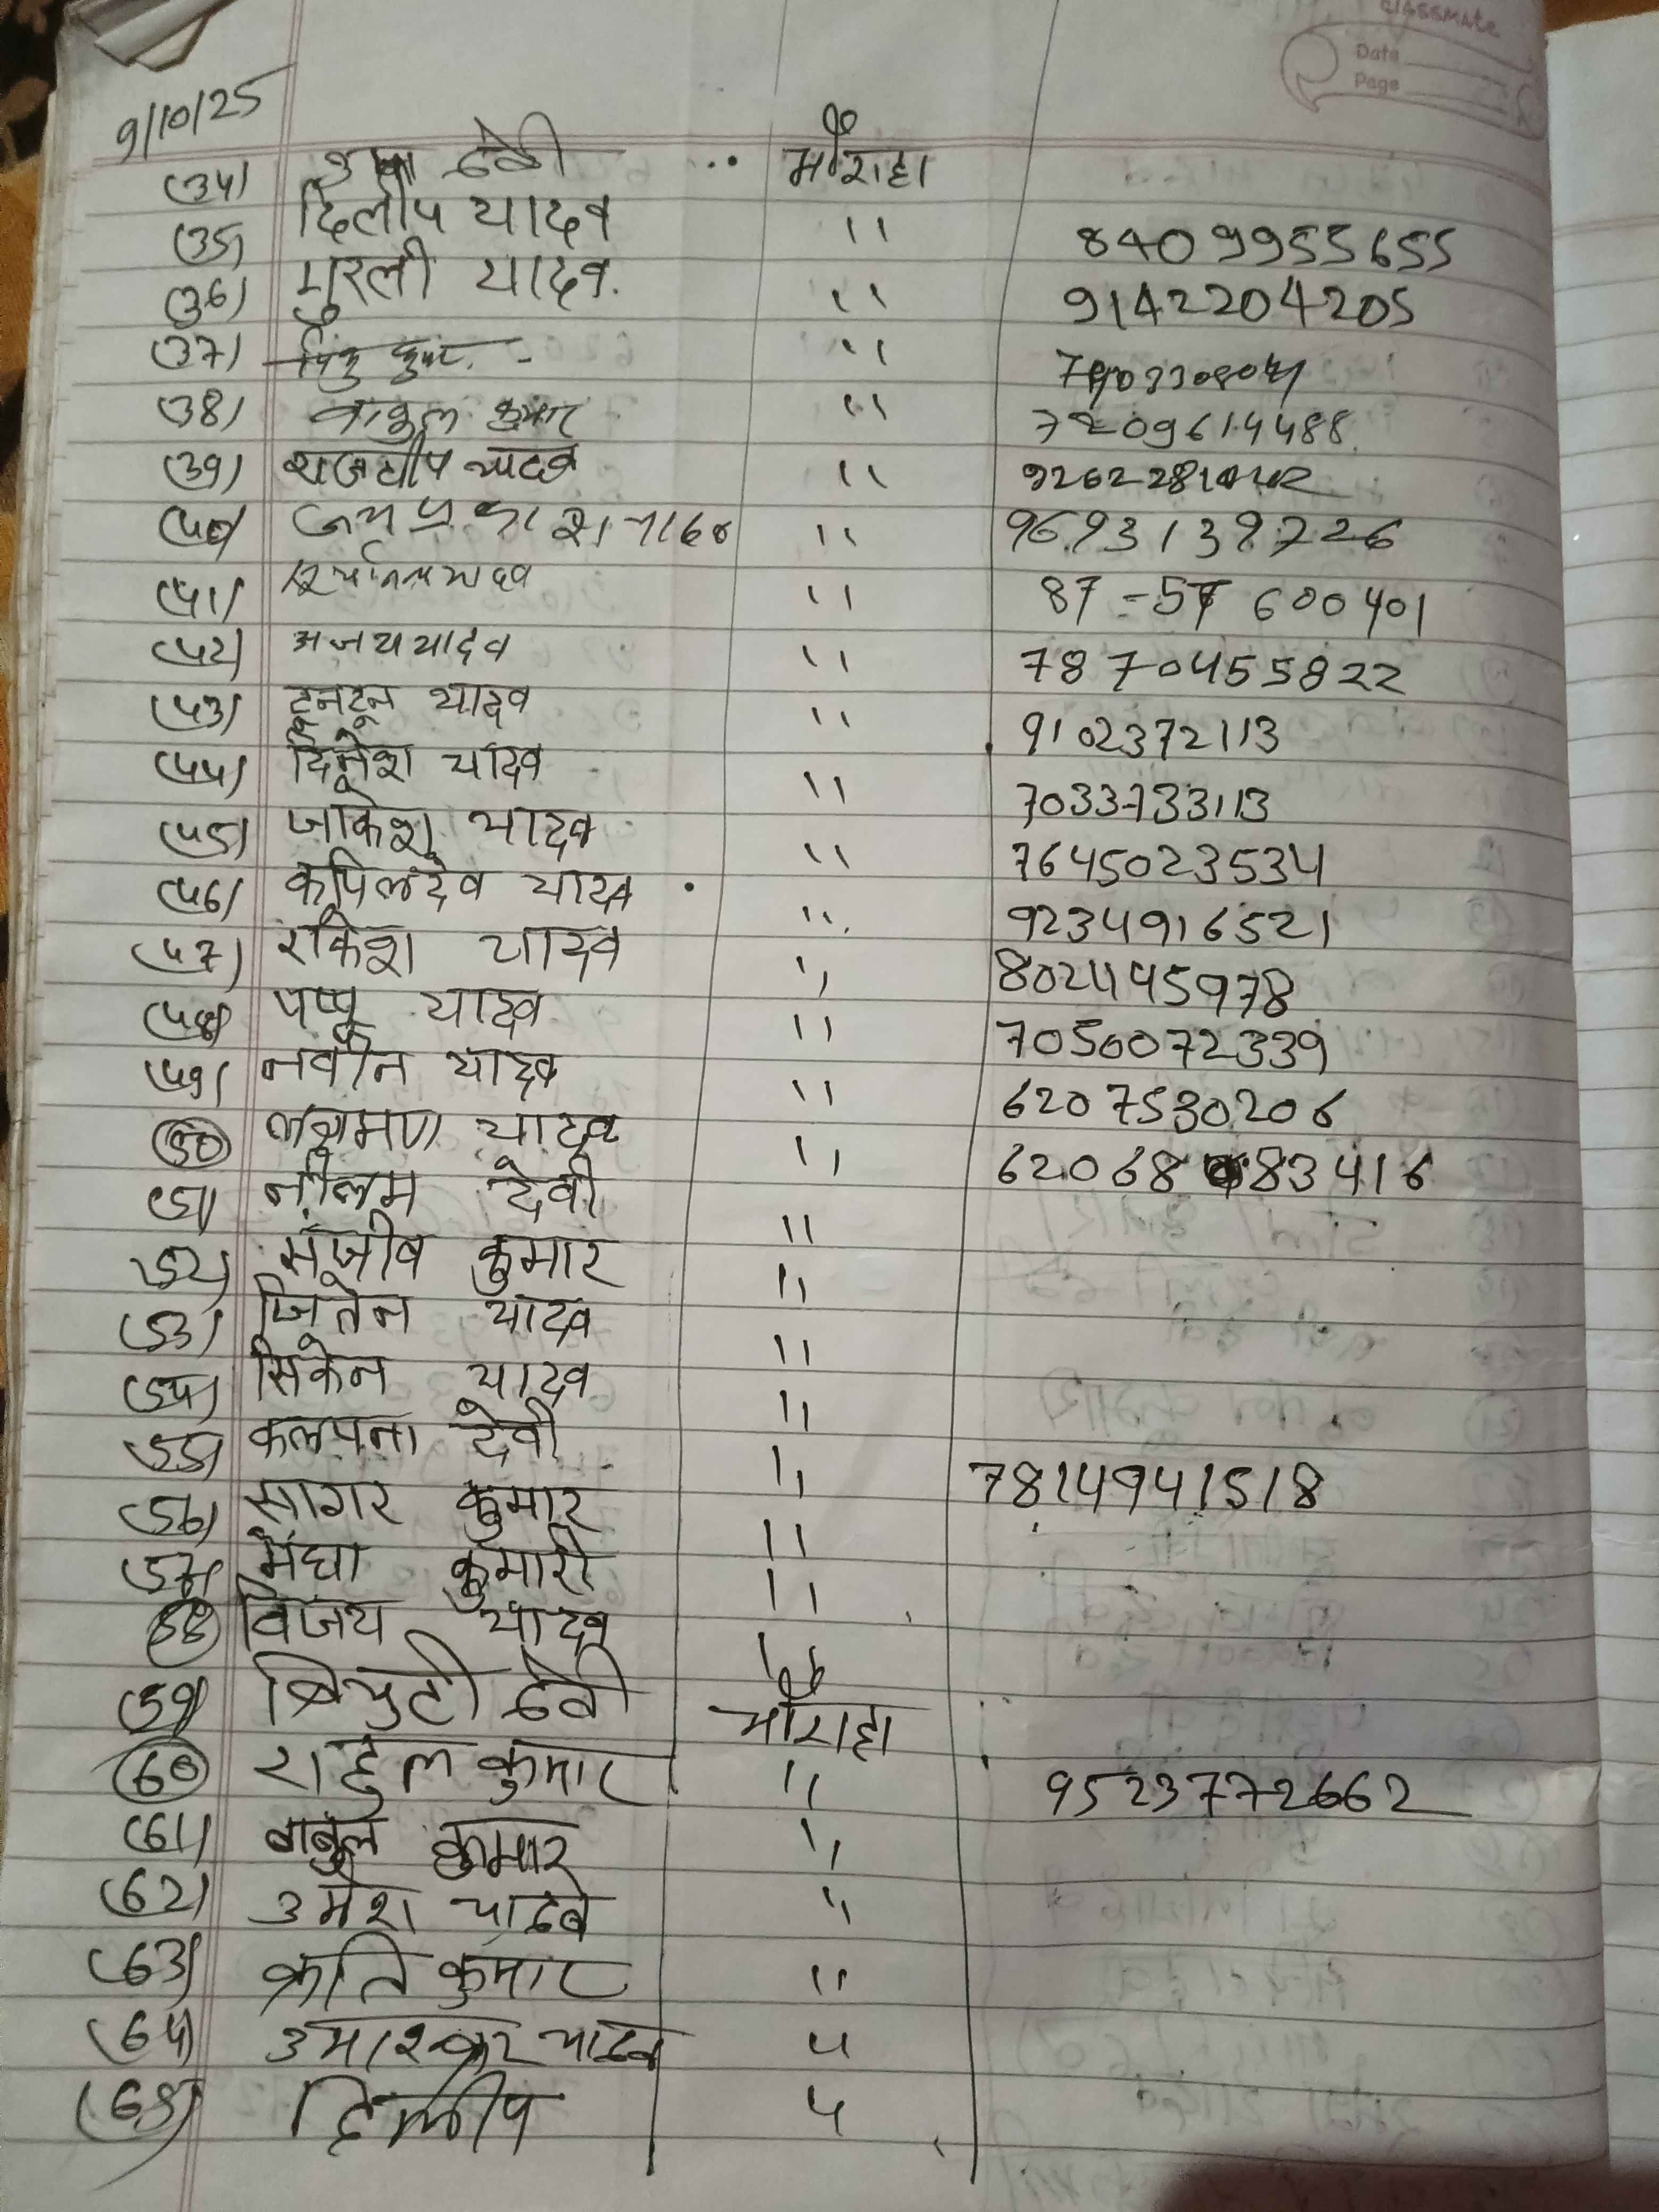 classmate
Date
Page
9/10/25
(34) उषा देवी .. मौराहा
(35) दिलीप यादव " 8409955655
(36) मुरली यादव. " 9142204205
(37) "
(38) कुमार " 7209614488
(39) राजदीप यादव "
(40) जय प्रकाश " 9693139726
(41) यादव " 87-57 600401
(42) अजय यादव " 7870455822
(43) टूनटून यादव " 9102372113
(44) दिनेश यादव " 7033733113
(45) यादव " 7645023534
(46) कपिलदेव यादव " 9234916521
(47) राकेश यादव "
(48) पप्पू यादव " 7056072339
(49) नवीन यादव " 6207530206
(50) लक्षमण यादव " 62068 83416
(51) नीलम देवी "
(52) कुमार "
(53) जितेन यादव "
(54) सिकेन यादव "
(55) कल्पना देवी " 7814941518
(56) सागर कुमार "
(57) मेघा कुमारी "
(58) विजय यादव "
(59) बियुटी देवी मौराहा
(60) राहुल कुमार " 9523772662
(61) बाबुल कुमार "
(62) उमेश यादव "
(63) कुमार "
(64) यादव "
(65) दिलीप "